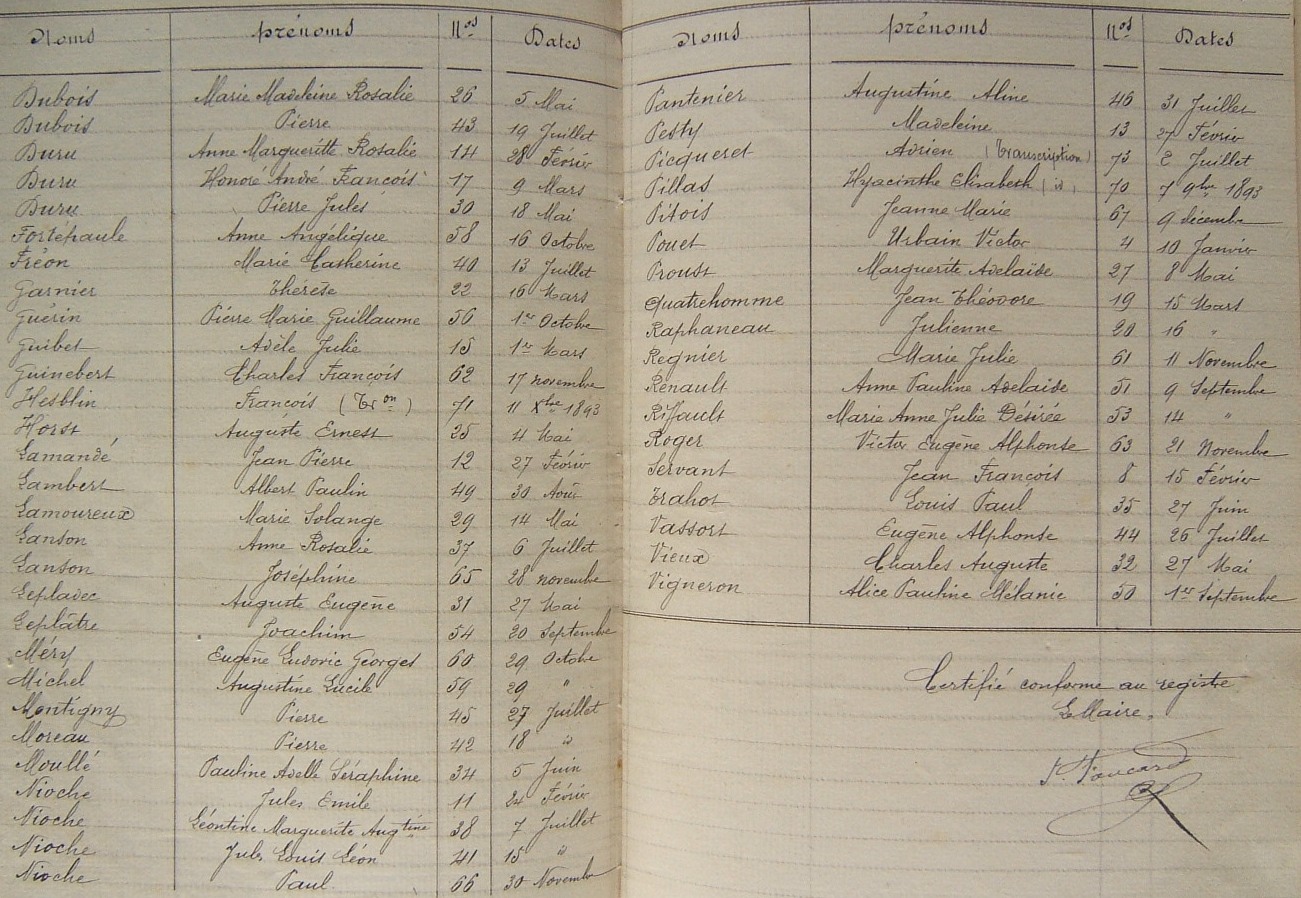 Noms prénoms Nos Dates
Dubois Marie Madeleine Rosalie 26 5 Mai
Dubois Pierre 43 19 Juillet
Duru Anne Margueritte Rosalie 14 28 Février
Duru Honoré André François 17 9 Mars
Duru Pierre Jules 30 18 Mai
Fortépaule Anne Angélique 58 16 Octobre
Fréon Marie Catherine 40 13 Juillet
Garnier Thérèse 22 16 Mars
Guérin Pierre Marie Guillaume 56 1er Octobre
Guibet Adèle Julie 15 1er Mars
Guinebert Charles François 62 17 novembre
Hesblin François (Tron) 71 11 Xbre 1893
Horst Auguste Ernest 25 4 Mai
Lamandé Jean Pierre 12 27 Février
Lambert Albert Paulin 49 30 Août
Lamoureux Marie Solange 29 14 Mai
Lanson Anne Rosalie 37 6 Juillet
Lanson Joséphine 65 28 novembre
Lepladec Auguste Eugène 31 27 Mai
Leplâtre Joachim 54 20 Septembre
Méry Eugène Ludovic Georges 60 29 Octobre
Michel Augustine Lucile 59 29 "
Montigny Pierre 45 27 Juillet
Moreau Pierre 42 18 "
Moullé Pauline Adelle Séraphine 34 5 Juin
Nioche Jules Emile 11 24 Février
Nioche Léontine Marguerite Augtine 38 7 Juillet
Nioche Jules Louis Léon 41 15 "
Nioche Paul 66 30 Novembre
Noms prénoms Nos Dates
Pantenier Augustine Aline 46 31 Juillet
Pesty Madeleine 13 27 Février
Picqueret Adrien (Transcription) 73 2 Juillet
Pillas Hyacinthe Elisabeth (id) 70 7 9bre 1893
Pitois Jeanne Marie 67 9 décembre
Pouet Urbain Victor 4 10 Janvier
Proust Marguerite Adelaïde 27 8 Mai
Quatrehomme Jean Théodore 19 15 Mars
Raphaneau Julienne 20 16 "
Regnier Marie Julie 61 11 Novembre
Renault Anne Pauline Adelaide 51 9 Septembre
Riffault Marie Anne Julie Désirée 53 14 "
Roger Victor Eugène Alphonse 63 21 Novembre
Servant Jean François 8 15 Février
Trahot Louis Paul 35 27 Juin
Vassort Eugène Alphonse 44 26 Juillet
Vieux Charles Auguste 32 27 Mai
Vigneron Alice Pauline Mélanie 50 1er Septembre
Certifié conforme au registre
Le Maire,